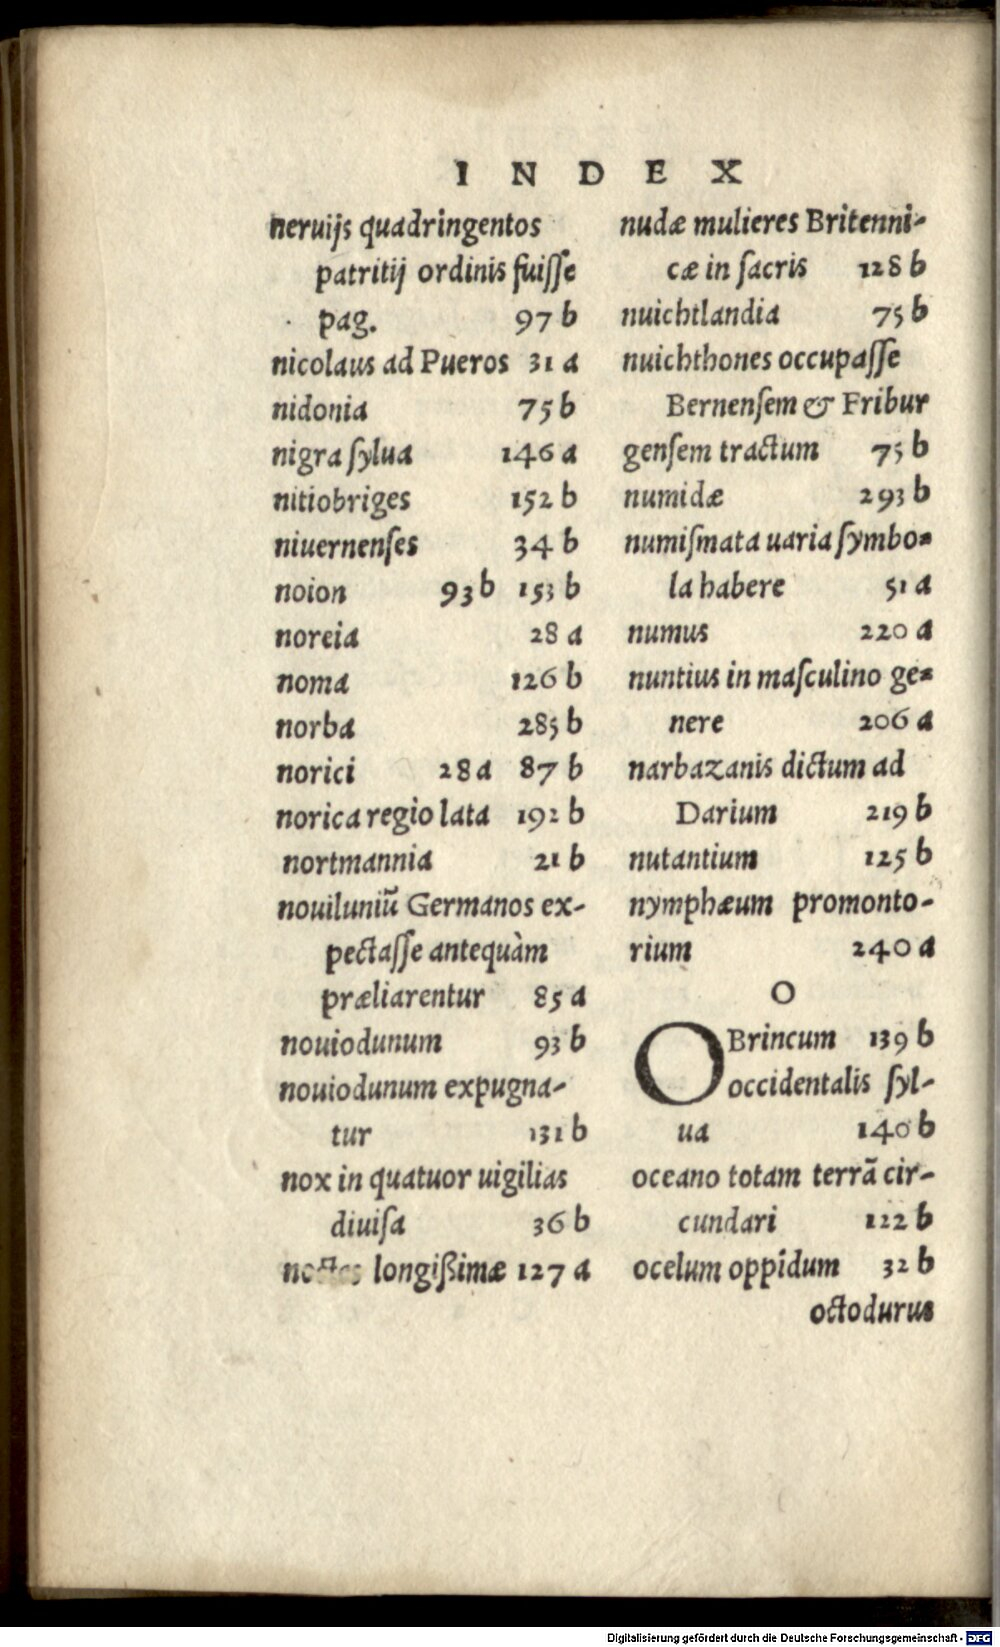 INDEX
neruijs quadringentos
patritij ordinis fuiſſe
pag. 97 b
nicolaus ad Pueros 31 a
nidonia 75 b
nigra ſylua 146 a
nitiobriges 152 b
niuernenſes 34 b
noion 93 b 153 b
noreia 28 a
noma 126 b
norba 285 b
norici 28 a 87 b
norica regio lata 192 b
nortmannia 21 b
nouiluniũ Germanos ex-
pectaſſe antequàm
præliarentur 85 a
nouiodunum 93 b
nouiodunum expugna-
tur 131 b
nox in quatuor uigilias
diuiſa 36 b
noctes longißimæ 127 a
nudæ mulieres Britenni-
cæ in ſacris 128 b
nuichtlandia 75 b
nuichthones occupaſſe
Bernenſem & Fribur
genſem tractum 75 b
numidæ 293 b
numiſmata uaria ſymbo-
la habere 51 a
numus 220 a
nuntius in maſculino ge-
nere 206 a
narbazanis dictum ad
Darium 219 b
nutantium 125 b
nymphæum promonto-
rium 240 a
O
OBrincum 139 b
occidentalis ſyl-
ua 140 b
oceano totam terrã cir-
cundari 122 b
ocelum oppidum 32 b
octodurus
Digitalisierung gefördert durch die Deutsche Forschungsgemeinschaft - DFG